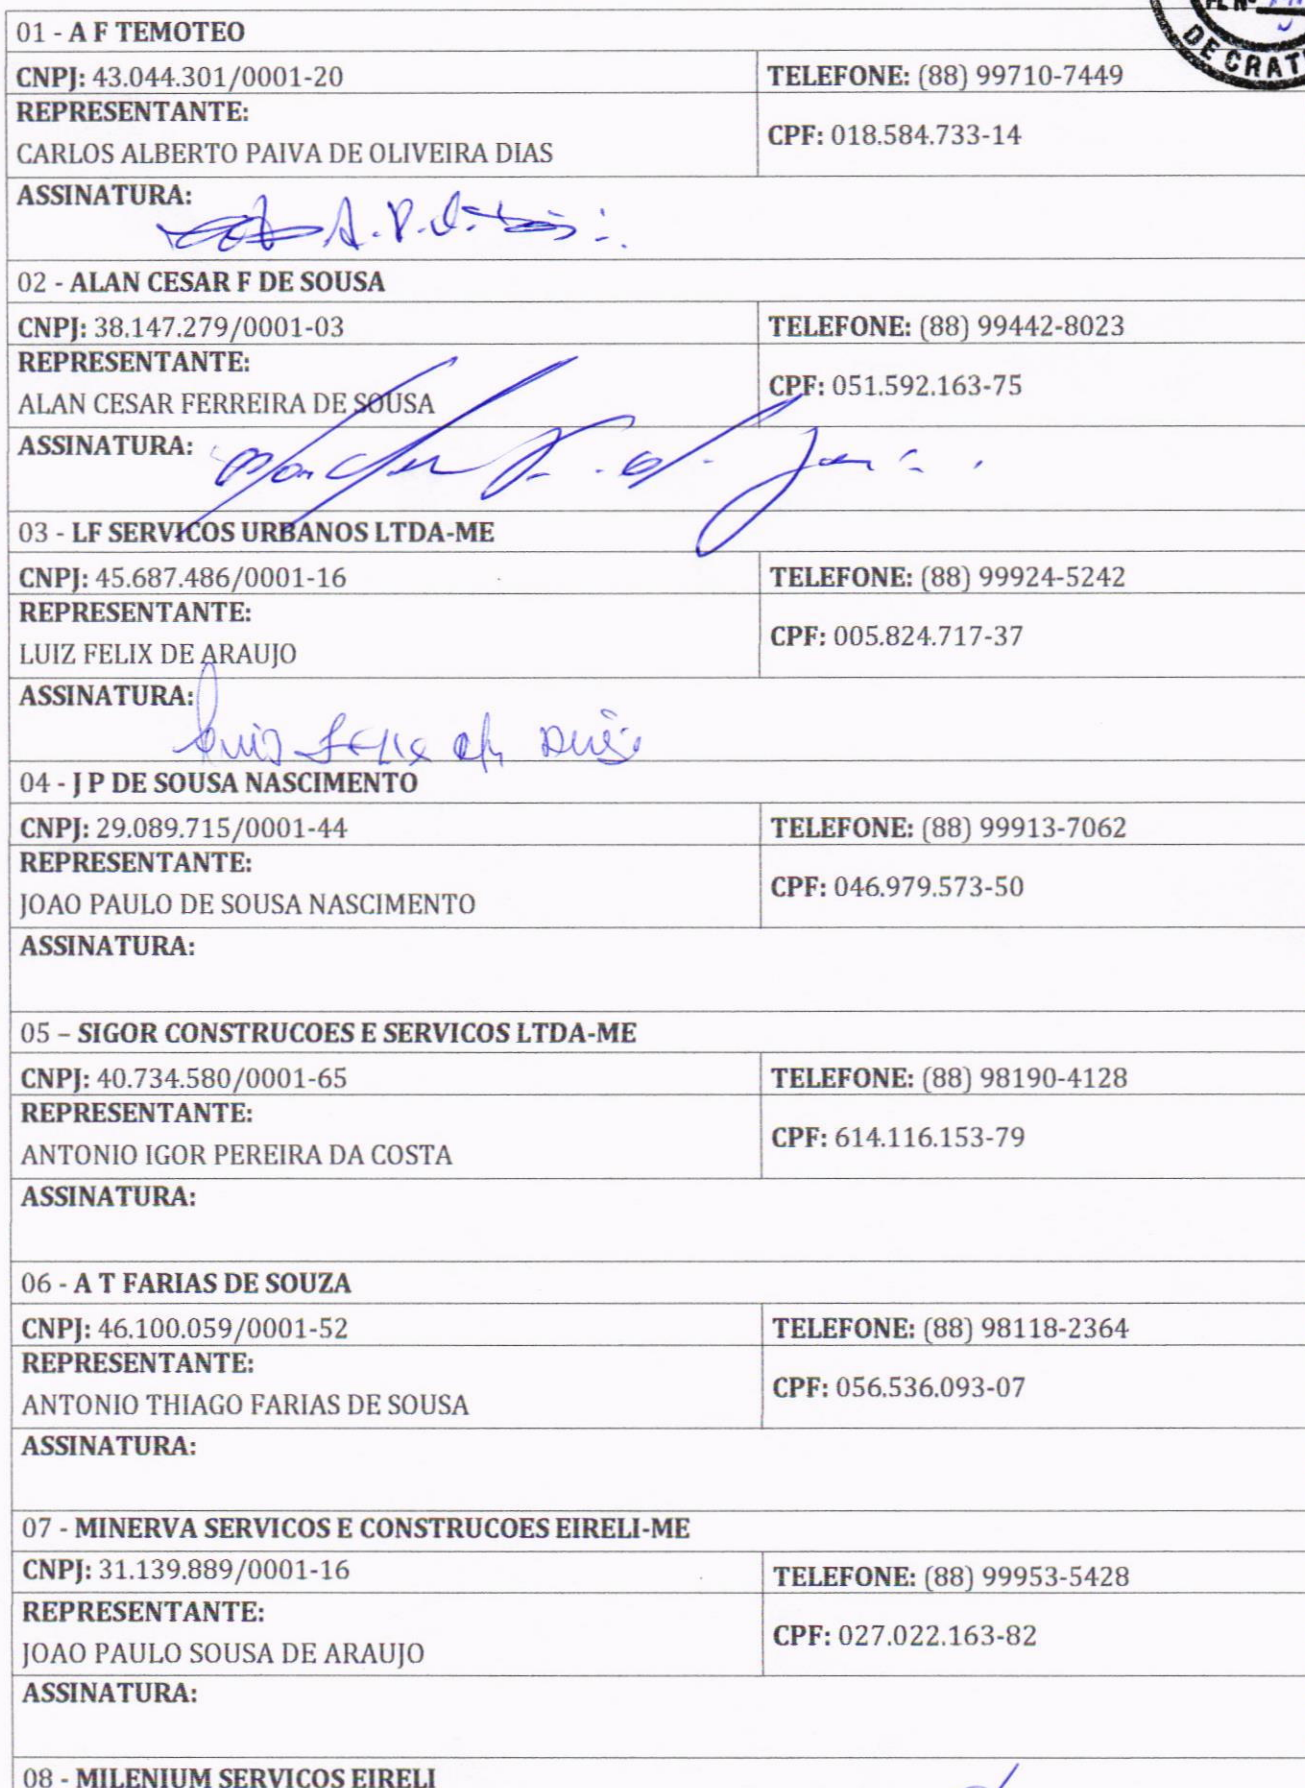 FL Nº
DE CRAT
01 - A F TEMOTEO
CNPJ: 43.044.301/0001-20 TELEFONE: (88) 99710-7449
REPRESENTANTE:
CARLOS ALBERTO PAIVA DE OLIVEIRA DIAS CPF: 018.584.733-14
ASSINATURA:
A. P. d.
02 - ALAN CESAR F DE SOUSA
CNPJ: 38.147.279/0001-03 TELEFONE: (88) 99442-8023
REPRESENTANTE:
ALAN CESAR FERREIRA DE SOUSA CPF: 051.592.163-75
ASSINATURA:
03 - LF SERVICOS URBANOS LTDA-ME
CNPJ: 45.687.486/0001-16 TELEFONE: (88) 99924-5242
REPRESENTANTE:
LUIZ FELIX DE ARAUJO CPF: 005.824.717-37
ASSINATURA:
04 - J P DE SOUSA NASCIMENTO
CNPJ: 29.089.715/0001-44 TELEFONE: (88) 99913-7062
REPRESENTANTE:
JOAO PAULO DE SOUSA NASCIMENTO CPF: 046.979.573-50
ASSINATURA:
05 – SIGOR CONSTRUCOES E SERVICOS LTDA-ME
CNPJ: 40.734.580/0001-65 TELEFONE: (88) 98190-4128
REPRESENTANTE:
ANTONIO IGOR PEREIRA DA COSTA CPF: 614.116.153-79
ASSINATURA:
06 - A T FARIAS DE SOUZA
CNPJ: 46.100.059/0001-52 TELEFONE: (88) 98118-2364
REPRESENTANTE:
ANTONIO THIAGO FARIAS DE SOUSA CPF: 056.536.093-07
ASSINATURA:
07 - MINERVA SERVICOS E CONSTRUCOES EIRELI-ME
CNPJ: 31.139.889/0001-16 TELEFONE: (88) 99953-5428
REPRESENTANTE:
JOAO PAULO SOUSA DE ARAUJO CPF: 027.022.163-82
ASSINATURA:
08 - MILENIUM SERVICOS EIRELI